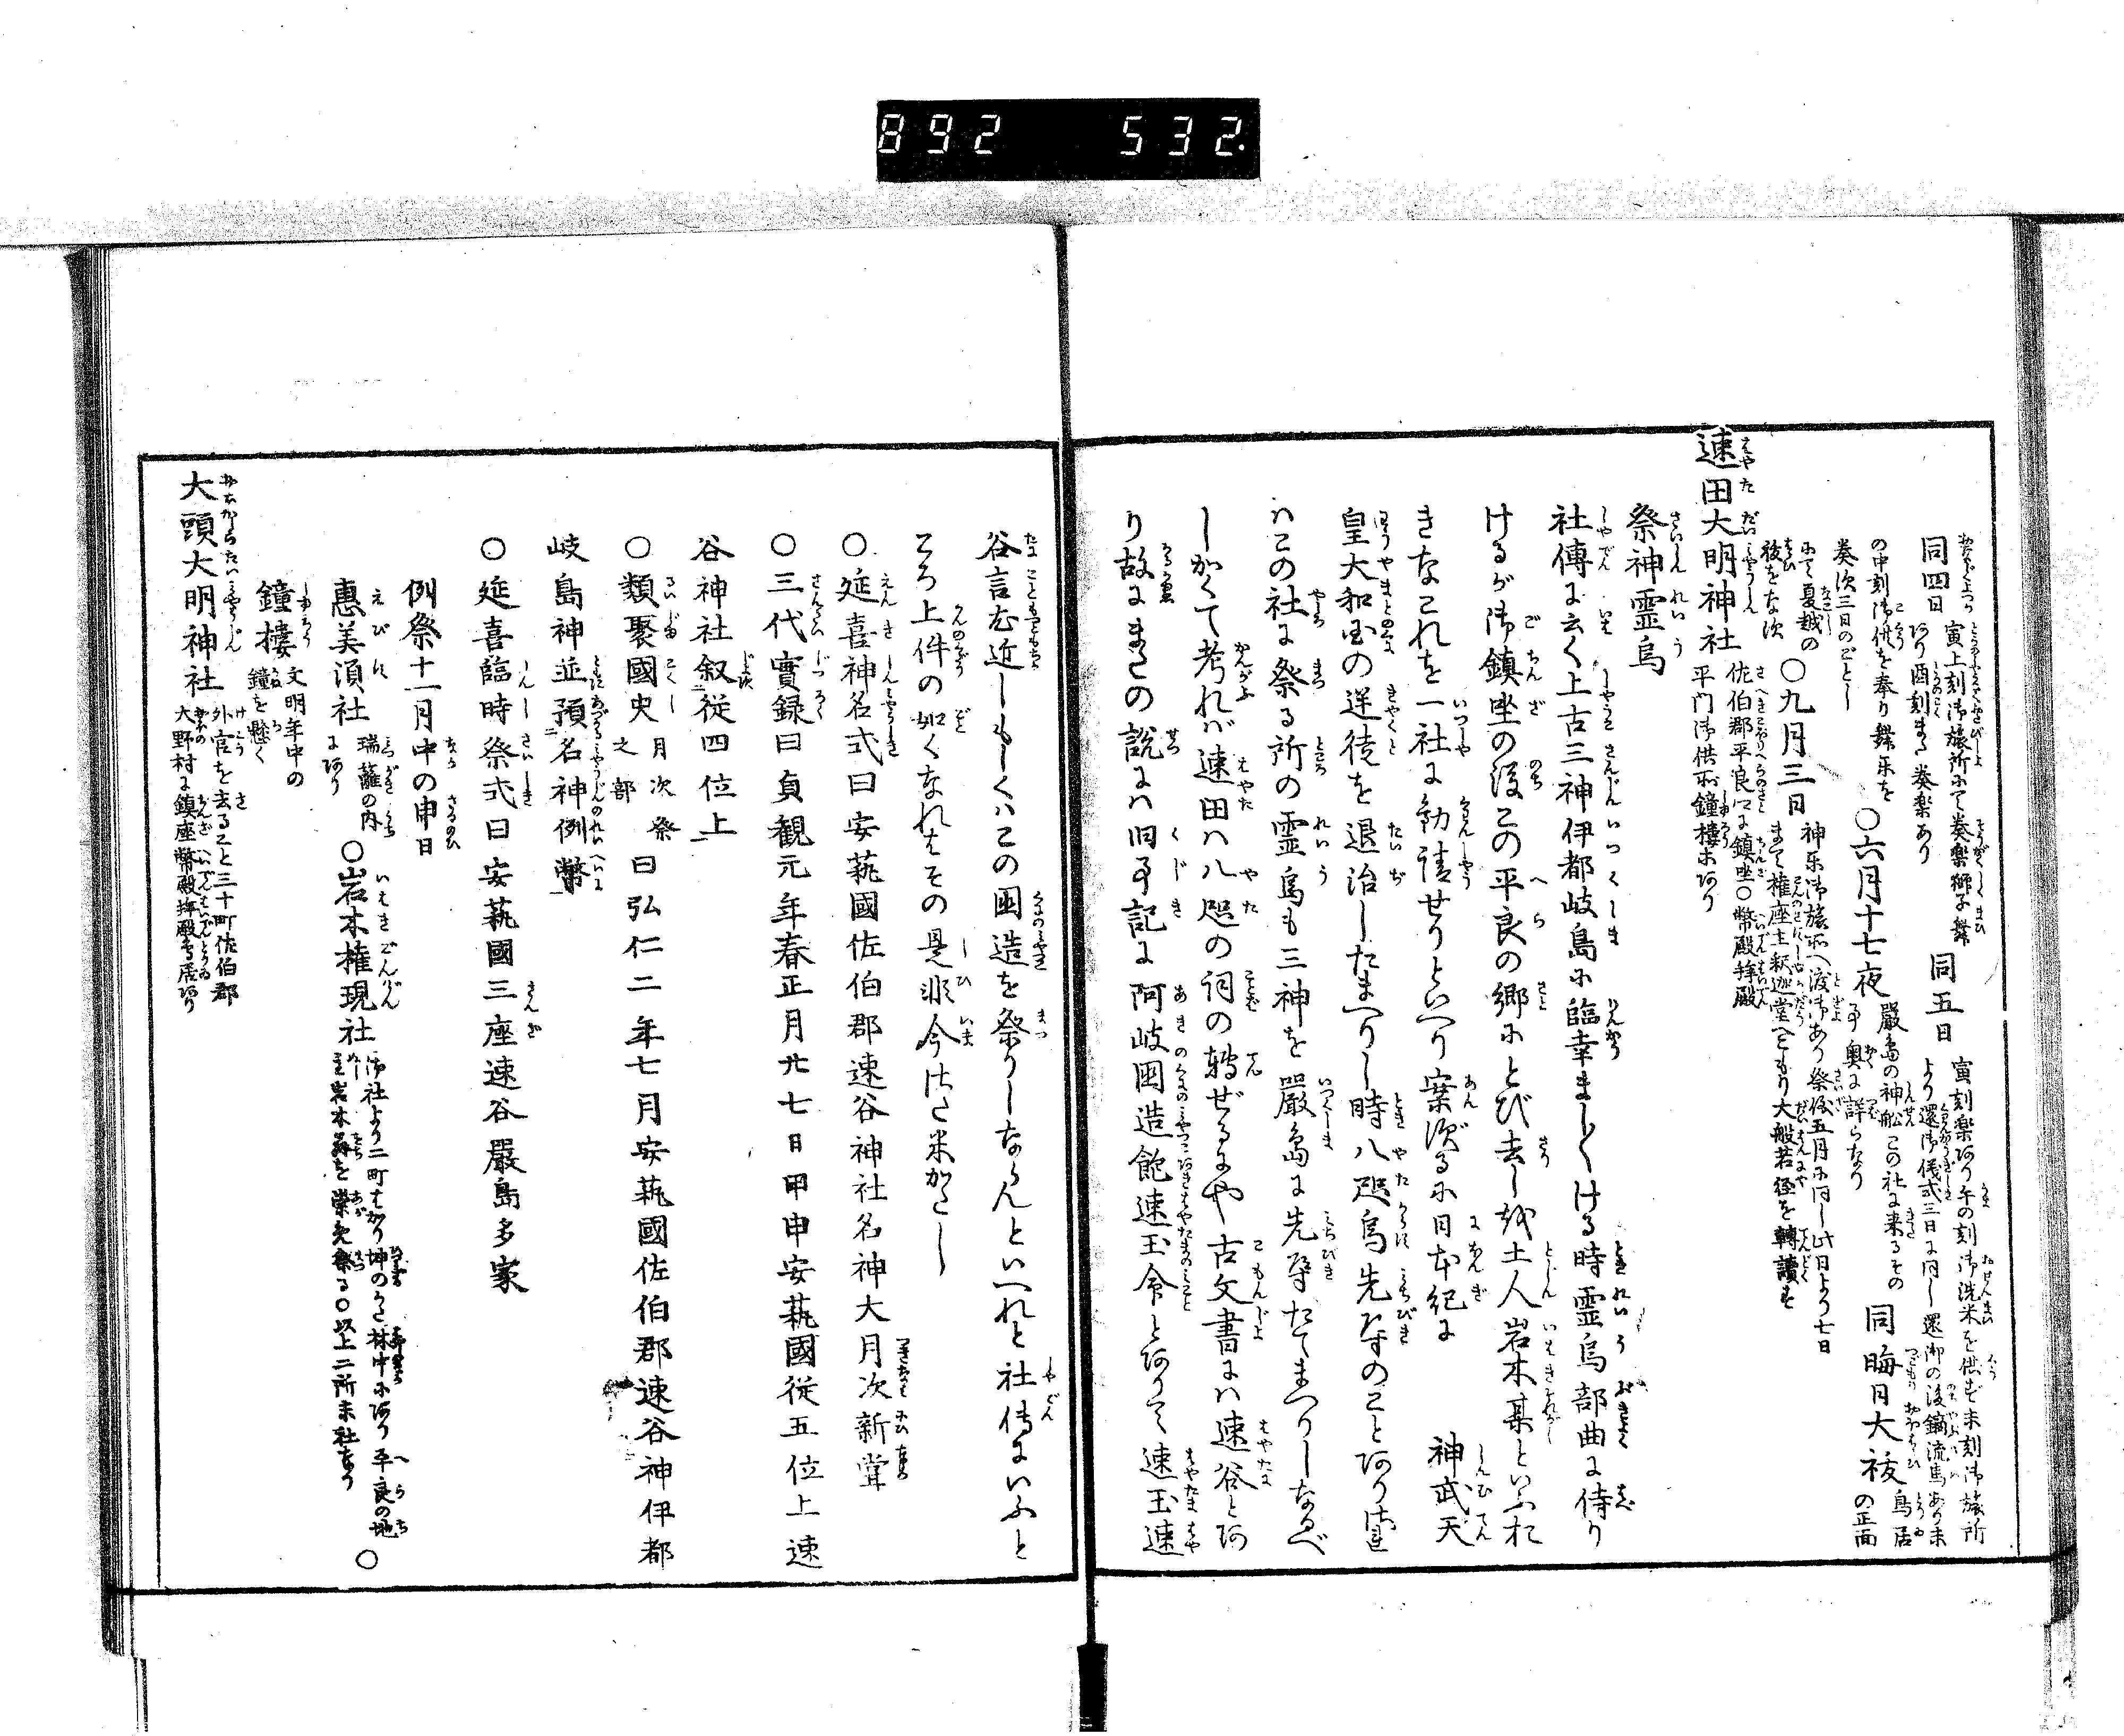 892 532.
同四日 寅上刻御旅所にて奏楽獅子舞
あり酉刻また奏楽あり
同五日 寅刻楽あり午の刻御洗米を供ず未刻御旅所
より還御儀式三日に同し還御の後鏑流馬あり未
の中刻御供を奉り舞楽を
奏次三日のごとし
○六月十七夜 嚴島の神船この社に来るその
事奥に詳らなり
同晦日大祓 鳥居
の正面
にて夏越の
祓をなす
○九月三日 神楽御旅所へ渡御あり祭儀五月に同し此日より七日
まで権座主釈迦堂へこもり大般若径を轉讀す
速田大明神社 佐伯郡平良に鎮坐○幣殿拝殿
平門御供所鐘樓あり
祭神霊烏
社傳に云く上古三神伊都岐島に臨幸ましく ける時霊烏部曲に侍り
けるが御鎮坐の後この平良の郷にとび去しを土人岩木某といふれ
きなこれを一社に勧請せりといへり案ずるに日本紀に 神武天
皇大和國の逆徒を退治したまへりし時八咫烏先導のことあり
ハこの社に祭る所の霊烏も三神を嚴島に先導たてまつりしなるべ
しかくて考れバ速田ハ八咫の詞の轉ぜるにや古文書にハ速谷とあ
り故にまたの説にハ旧事記に阿岐国造飽速玉命とありて速玉速
谷言も近しもしくハこの国造を祭りしならんといへれと社傳にいふと
ころ上件の如くなれはその是非今はた決がたし
○延喜神名式曰安藝國佐伯郡速谷神社名神大月次新甞
○三代實録曰貞観元年春正月廿七日甲申安藝國従五位上速
谷神社叙従四位上
○類聚國史 月次祭
之部 曰弘仁二年七月安藝國佐伯郡速谷神伊都
岐島神並預名神例幣
○延喜臨時祭式曰安藝國三座速谷嚴島多家
例祭十一月中の申日
惠美湏社 瑞籬の内
にあり
○岩木権現社 御社より二町ばかり坤のかた林中にあり平良の地
主岩木某を崇免祭る○以上二所末社なり
○
鐘樓 文明年中の
鐘を懸く
大頭大明神社 外宮を去ること三十町佐伯郡
大野村に鎮座幣殿拝殿鳥居あり